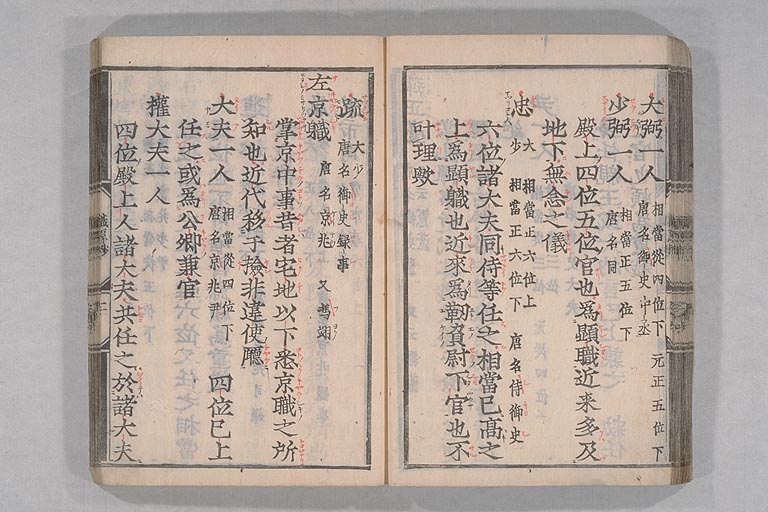 大弼一人 相當從四位下 元正五位下
唐名御史中丞
少弼一人 相當正五位下
唐名同
殿上四位五位官也爲顯職近来多及
地下無念之儀
忠 大 相當正六位上
少 相當正六位下 唐名侍御史
六位諸大夫同侍等任之相當已高之
上爲顯職也近來爲勸賞尉下官也不
叶理歟
疏 大少 唐名御史錄事
左京職 唐名京兆 又馮翊
掌京中事昔者宅地以下悉京職之所
知也近代移于撿非違使廳
大夫一人 相當從四位下 四位已上
唐名京兆尹
任之或爲公卿兼官
權大夫一人
四位殿上人諸大夫共任之於諸大夫